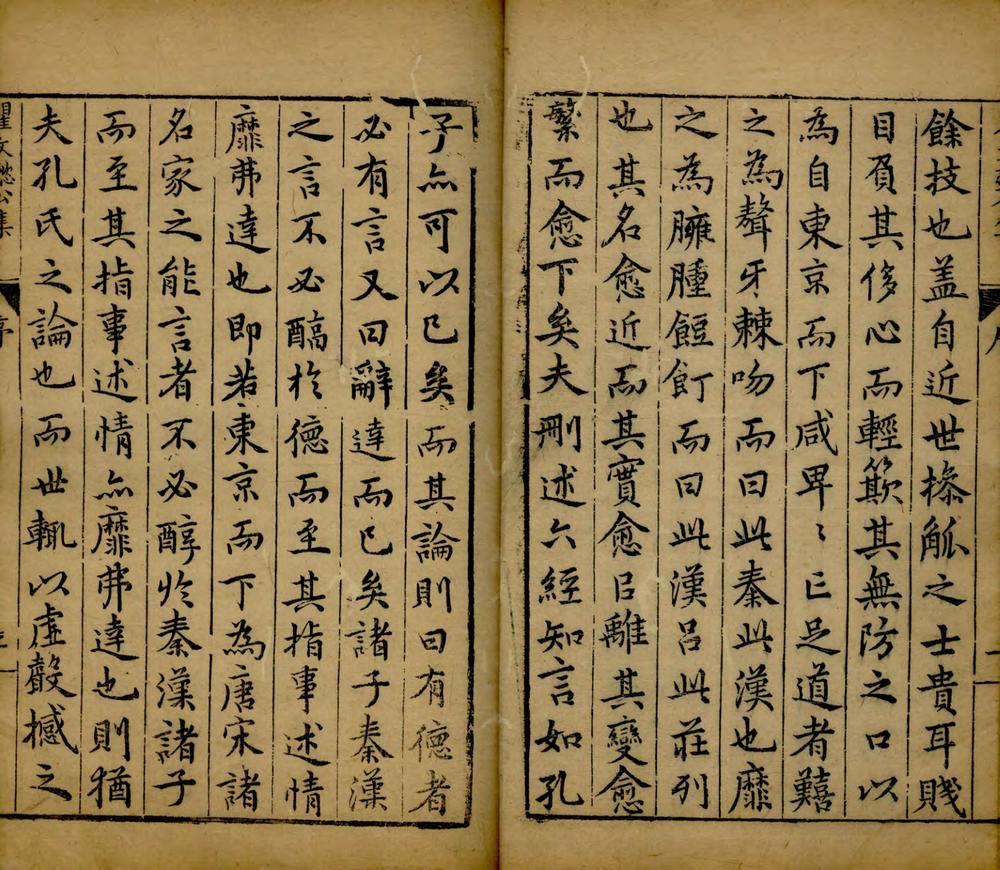 餘技也盖自近世操觚之士貴耳賤
目負其侈心而輕欺其無防之口以
為自東京而下咸卑〻亡足道者囏
之為聱牙棘吻而曰此秦此漢也靡
之為臃腫餖飣而曰此漢吕此莊列
也其名愈近而其實愈㠯離其變愈
繁而愈下矣夫刪述六經知言如孔
子亦可以已矣而其論則曰有德者
必有言又曰辭達而已矣諸子秦漢
之言不必醕扵德而至其指事述情
靡弗達也即若東京而下為唐宋諸
名家之能言者不必醇扵秦漢諸子
而至其指事述情亦靡弗達也則猶
夫孔氏之論也而世輒以虛聲撼之
瞿文懿公集
序